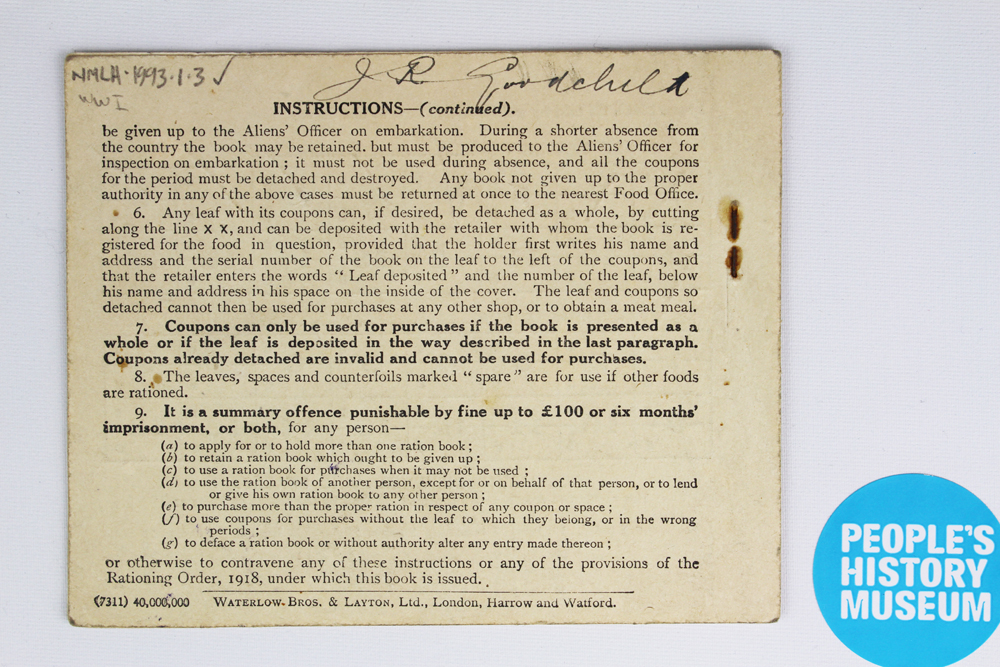 NMLH·1993·1·3 ✓
WWI
J R Goodchild
INSTRUCTIONS—(continued).
be given up to the Aliens' Officer on embarkation. During a shorter absence from
the country the book may be retained. but must be produced to the Aliens' Officer for
inspection on embarkation ; it must not be used during absence, and all the coupons
for the period must be detached and destroyed. Any book not given up to the proper
authority in any of the above cases must be returned at once to the nearest Food Office.
6. Any leaf with its coupons can, if desired, be detached as a whole, by cutting
along the line X X, and can be deposited with the retailer with whom the book is re-
gistered for the food in question, provided that the holder first writes his name and
address and the serial number of the book on the leaf to the left of the coupons, and
that the retailer enters the words “ Leaf deposited ” and the number of the leaf, below
his name and address in his space on the inside of the cover. The leaf and coupons so
detached cannot then be used for purchases at any other shop, or to obtain a meat meal.
7. Coupons can only be used for purchases if the book is presented as a
whole or if the leaf is deposited in the way described in the last paragraph.
Coupons already detached are invalid and cannot be used for purchases.
8. The leaves, spaces and counterfoils marked “ spare ” are for use if other foods
are rationed.
9. It is a summary offence punishable by fine up to £100 or six months'
imprisonment, or both, for any person—
(a) to apply for or to hold more than one ration book ;
(b) to retain a ration book which ought to be given up ;
(c) to use a ration book for purchases when it may not be used ;
(d) to use the ration book of another person, except for or on behalf of that person, or to lend
or give his own ration book to any other person ;
(e) to purchase more than the proper ration in respect of any coupon or space ;
(f) to use coupons for purchases without the leaf to which they belong, or in the wrong
periods ;
(g) to deface a ration book or without authority alter any entry made thereon ;
or otherwise to contravene any of these instructions or any of the provisions of the
Rationing Order, 1918, under which this book is issued.
(7311) 40,000,000 WATERLOW BROS. & LAYTON, Ltd., London, Harrow and Watford.
PEOPLE'S
HISTORY
MUSEUM